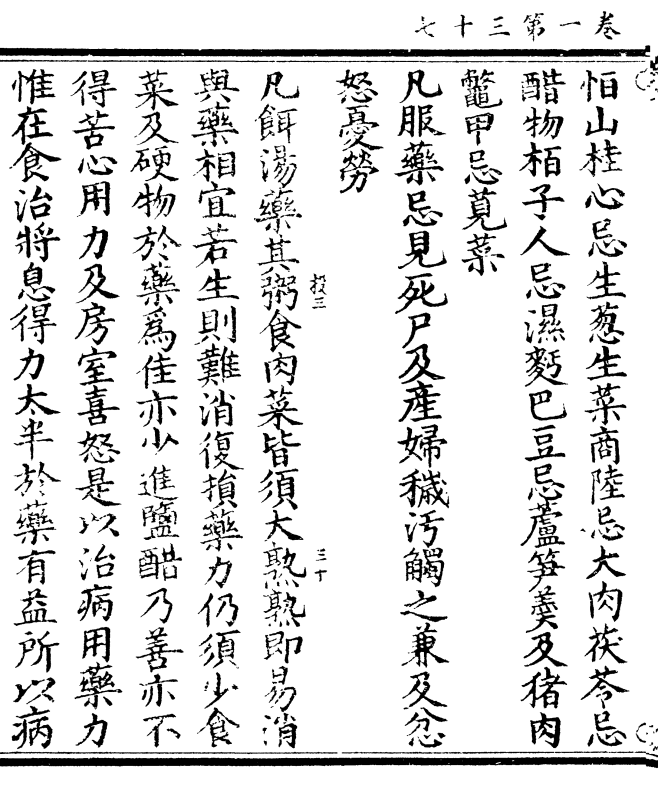 卷一第三十七
怕山桂心忌生葱生菜商陸忌大肉茯苓忌
醋物栢子人忌濕麪巴豆忌蘆笋羹及猪肉
鼈甲忌莧菜
凡服藥忌見死尸及産婦穢汚觸之兼及忿
怒憂勞
投三 三十
凡餌湯藥其粥食肉菜皆須大熟熟即易消
與藥相宜若生則難消復損藥力仍須少食
菜及硬物於藥爲佳亦少進鹽醋乃善亦不
得苦心用力及房室喜怒是以治病用藥力
惟在食治將息得力太半於藥有益所以病